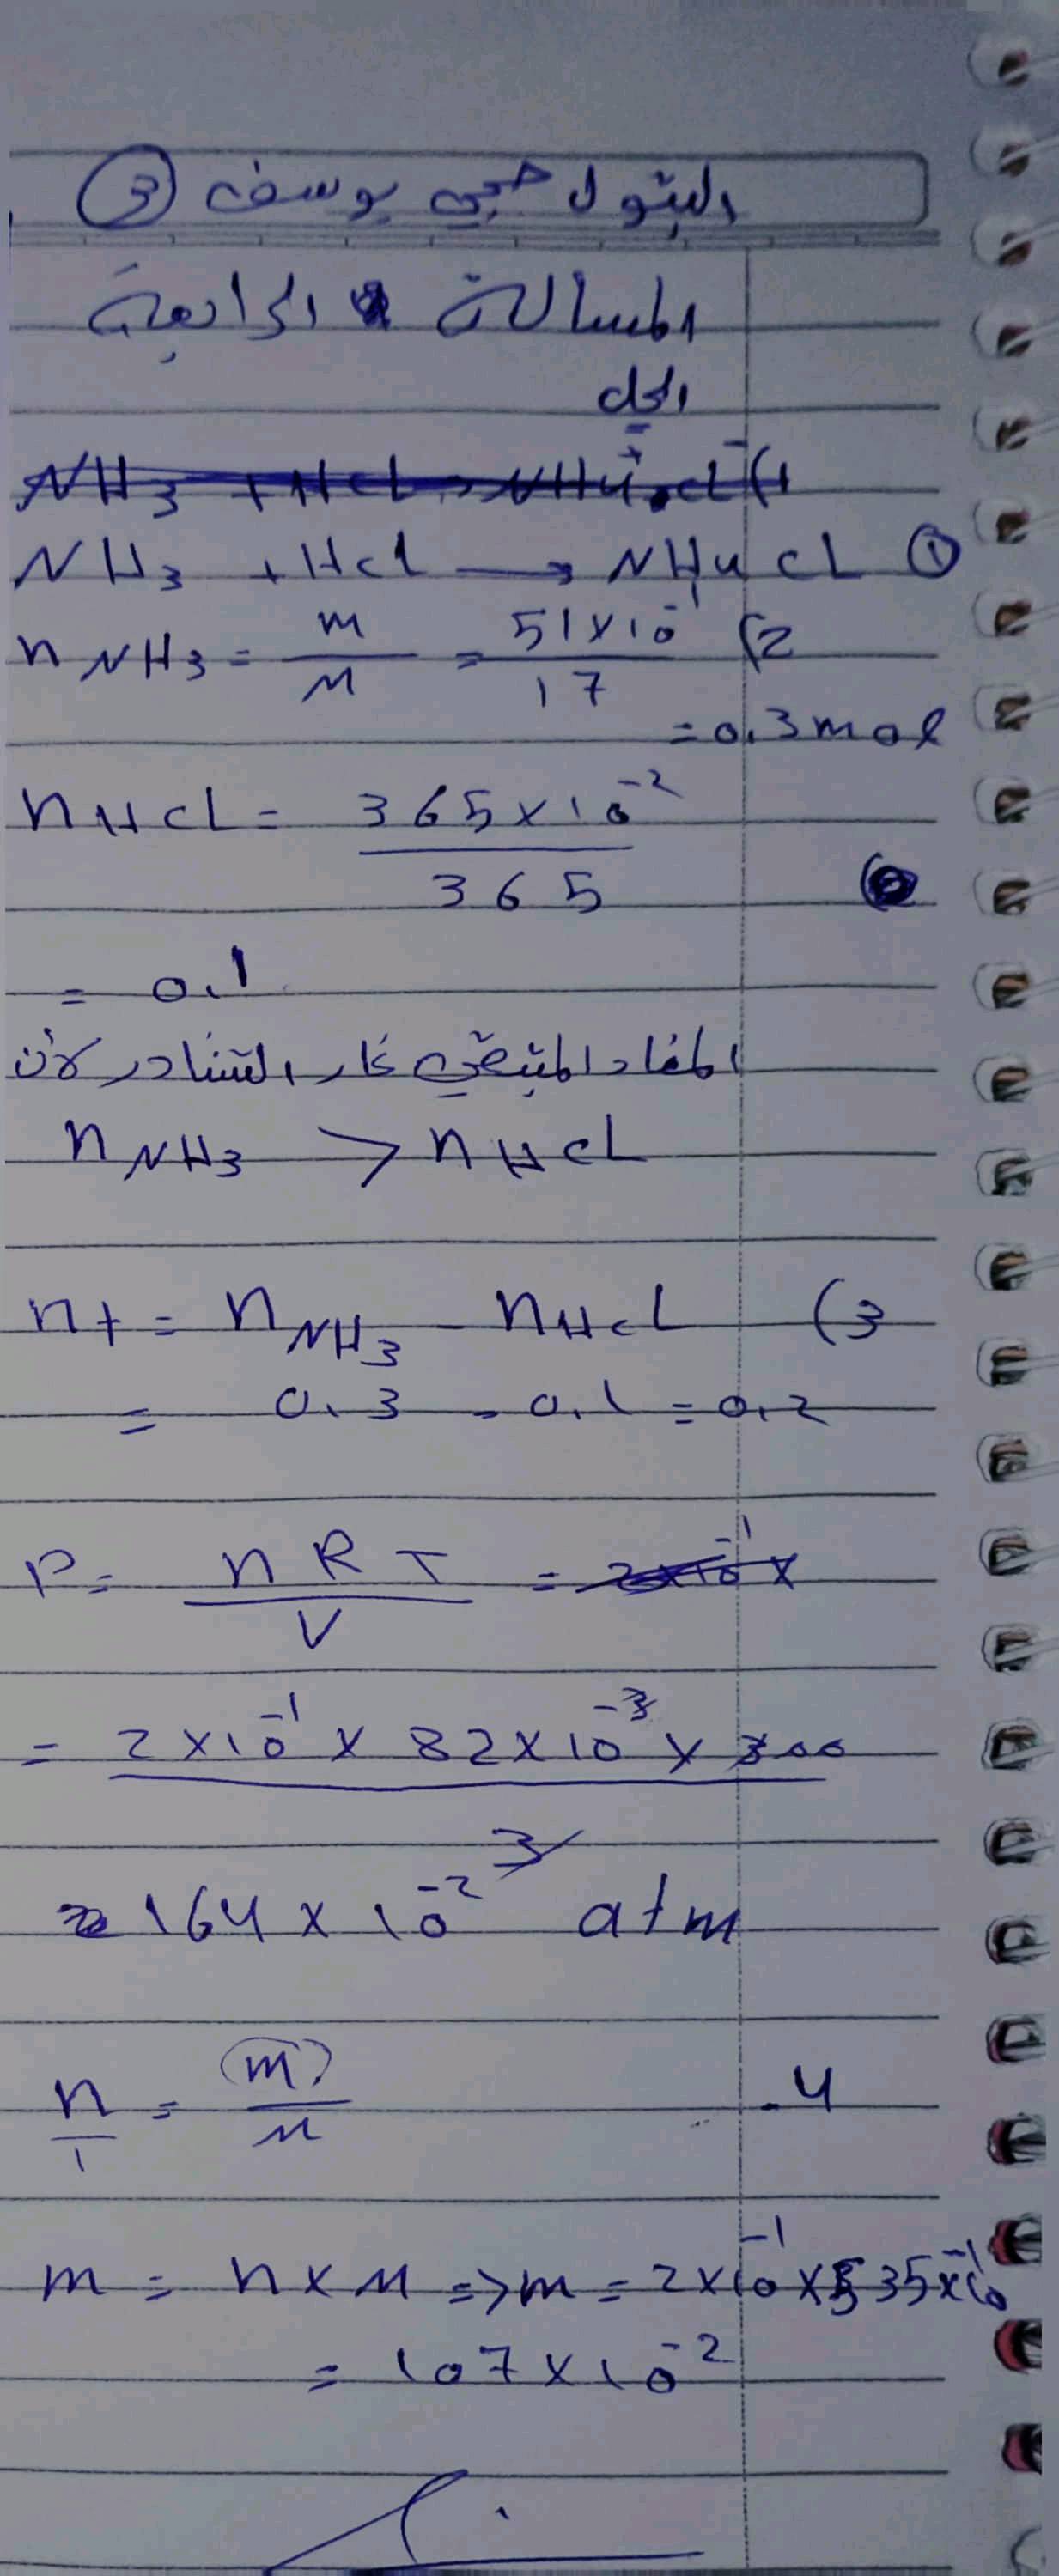 البتول حجي يوسف ③
المسالة الرابعة
الحل
NH3 + HCl → NH4+ . Cl- (1
NH3 + HCl → NH4Cl ①
n NH3 = m/M = 51×10^-1 / 17 (2
= 0.3 mol
n HCl = 365×10^-2 / 365
= 0.1
الغاز المتبقي غاز النشادر لأن
n NH3 > n HCl
nt = n NH3 - n HCl (3
= 0.3 - 0.1 = 0.2
P = nRT / V = 2×10^-1 ×
= 2×10^-1 × 82×10^-3 × 300 / 3
= 164 × 10^-2 atm
n/1 = (m)/M -4
m = n×M => m = 2×10^-1 × 535×10^-1
= 107×10^-2